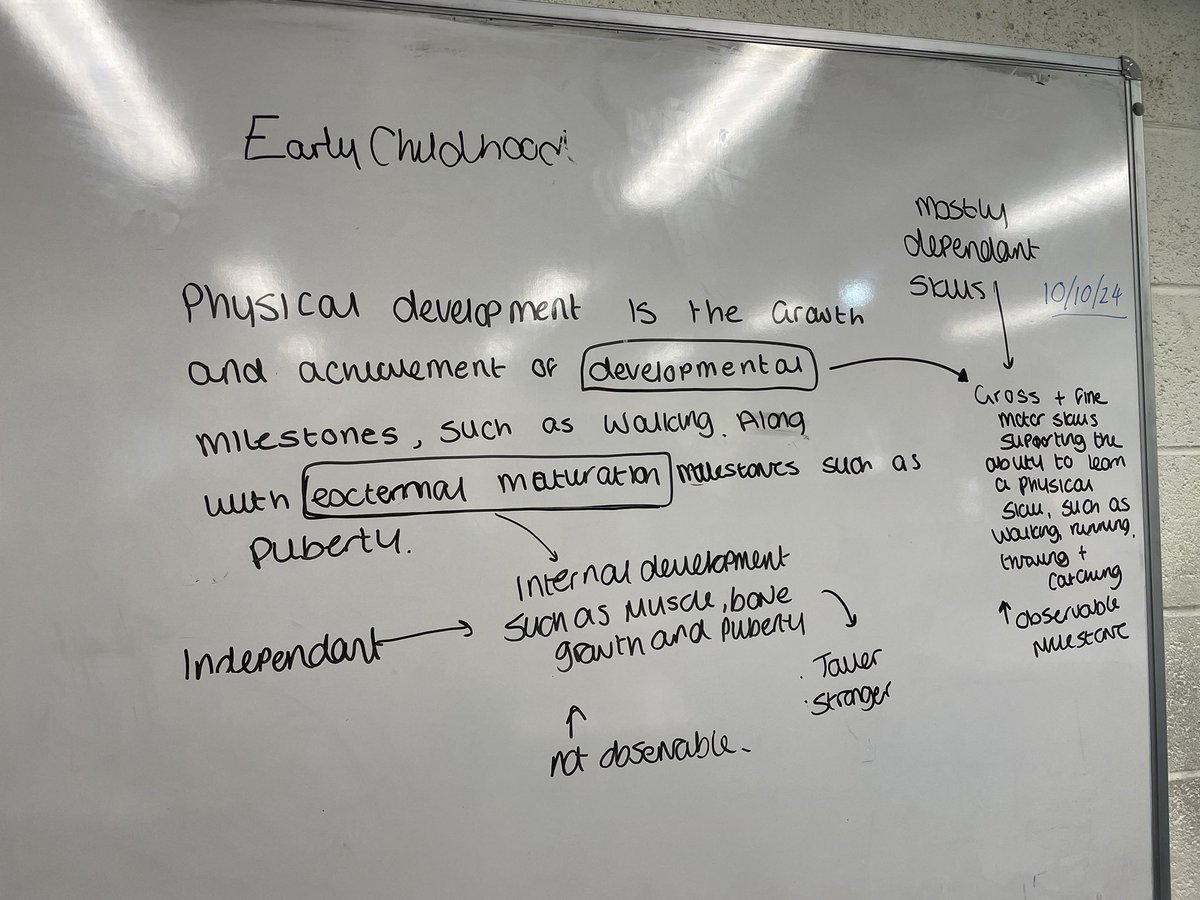 Early Childhood
Physical development is the Growth
and achievement of developmental
milestones, such as walking. Along
with external maturation milestones such as
Puberty.
Mostly
dependant
skills
10/10/24
Gross + fine
motor skills
supporting the
ability to learn
a physical
skill, such as
walking, running,
throwing +
catching
↑ observable
milestone
Internal development
such as muscle, bone
growth and puberty
Independant
· Taller
· Stronger
not observable.